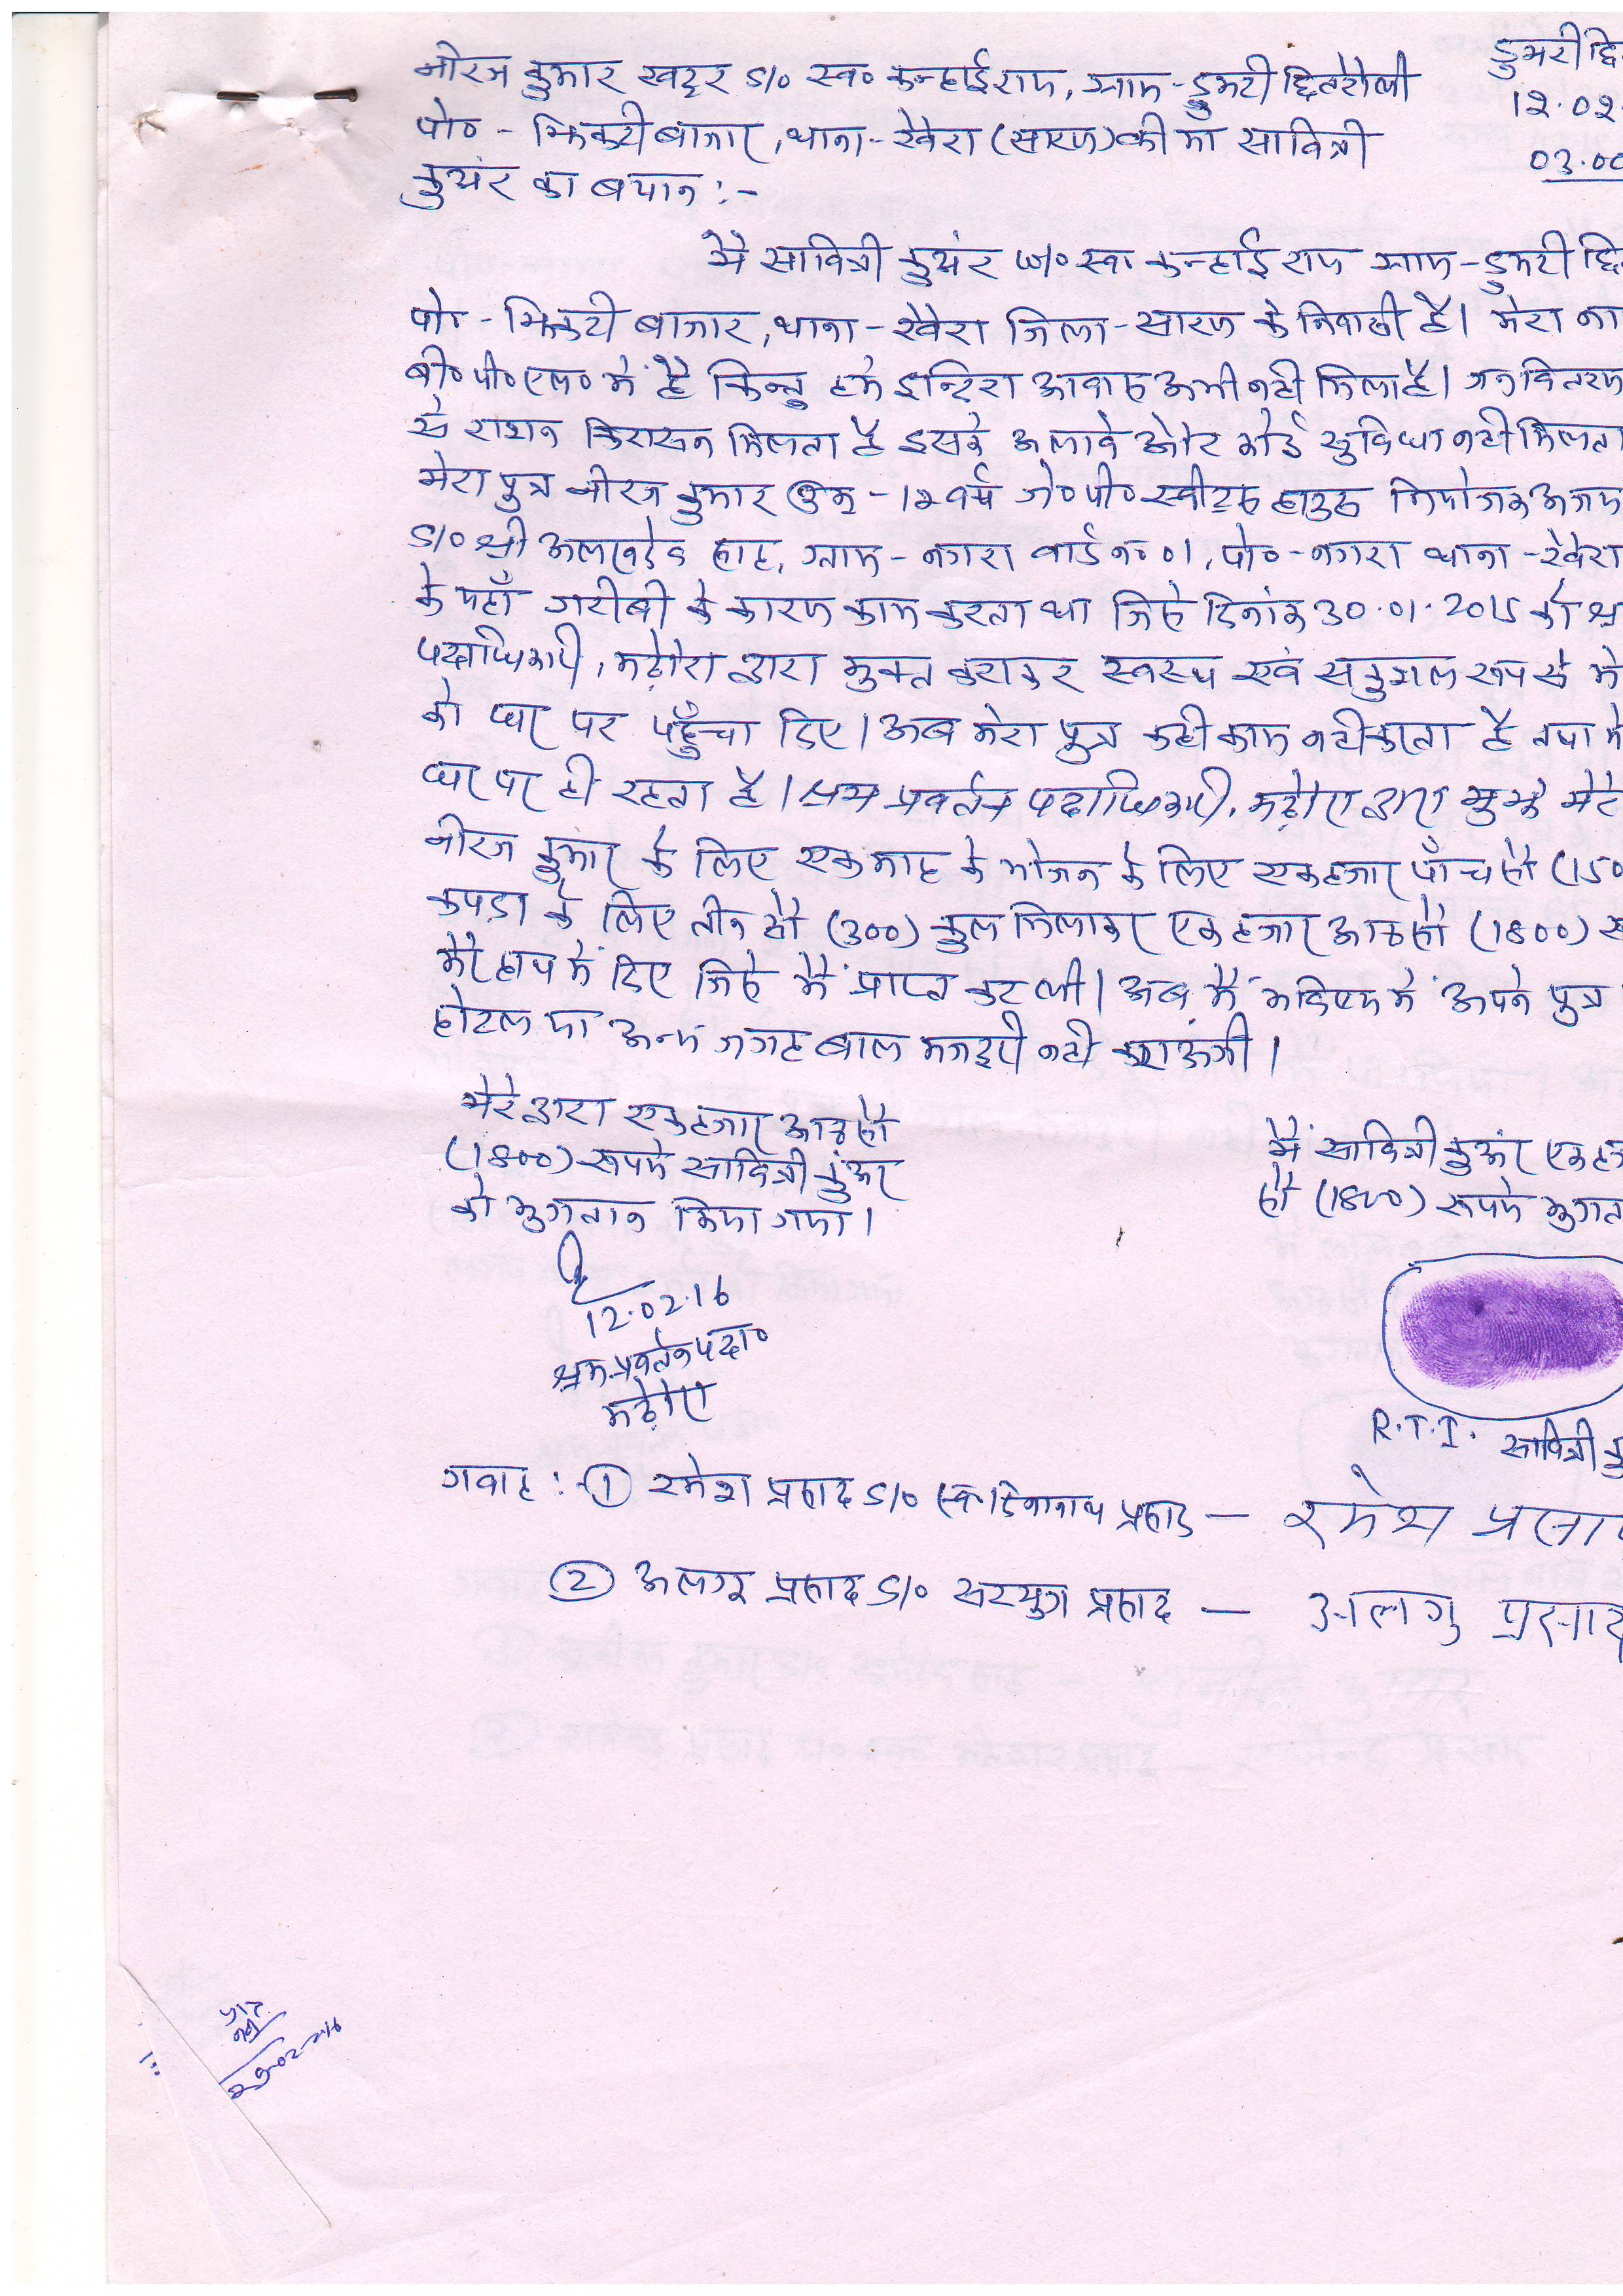 नीरज कुमार S/o स्व० कन्हाई राम, ग्राम-डुमरी छितरोली
पो०-झिकटी बाजार, थाना-खैरा (सारण) की मां सावित्री
कुअंर का बयान :-
डुमरी छि
12.02.
03.00
मै सावित्री कुअंर w/o स्व० कन्हाई राम ग्राम-डुमरी छि
पो०-झिकटी बाजार, थाना-खैरा जिला-सारण के निवासी है। मेरा ना
बी०पी०एल० में है किन्तु हमे इन्दिरा आवास अभी नहीं मिला है। जन वितरण
से राशन किरासन मिलता है इसके अलावे और कोई सुविधा नहीं मिलता
मेरा पुत्र नीरज कुमार उम्र-12 वर्ष जे०पी० स्वीट्स हाउस नियोजक अजय
S/o श्री साह, ग्राम-नगरा वार्ड न० 01, पो०-नगरा थाना-खैरा
के यहाँ गरीबी के कारण काम करता था जिसे दिनांक 30.01.2015 को श्र
पदाधिकारी, मढ़ौरा द्वारा मुक्त कराकर स्वस्थ एवं सकुशल रूप से मे
को घर पर पहुँचा दिए। अब मेरा पुत्र कहीं काम नहीं करता है तथा मे
घर पर ही रहता है। श्रम प्रवर्तन पदाधिकारी, मढ़ौरा द्वारा मुझे मेरे
नीरज कुमार के लिए एक माह के भोजन के लिए एक हजार पाँच सौ (150
कपड़ा के लिए तीन सौ (300) कुल मिलाकर एक हजार आठ सौ (1800) रू
मेरे हाथ में दिए जिसे मैं प्राप्त कर ली। अब मैं भविष्य में अपने पुत्र
होटल या अन्य जगह बाल मजदूरी नहीं कराऊंगी।
मेरे द्वारा एक हजार आठ सौ
(1800) रूपये सावित्री कुंअर
को भुगतान किया गया।
12.02.16
श्रम प्रवर्तन पदा०
मढ़ौरा
मैं सावित्री कुअंर एक ह
सौ (1800) रूपये भुगत
R.T.I. सावित्री कु
गवाह :- ① रमेश प्रसाद S/o स्व० दिनानाथ प्रसाद — रमेश प्रसा
② अलगू प्रसाद S/o सरयुग प्रसाद — अलगु प्रसाद